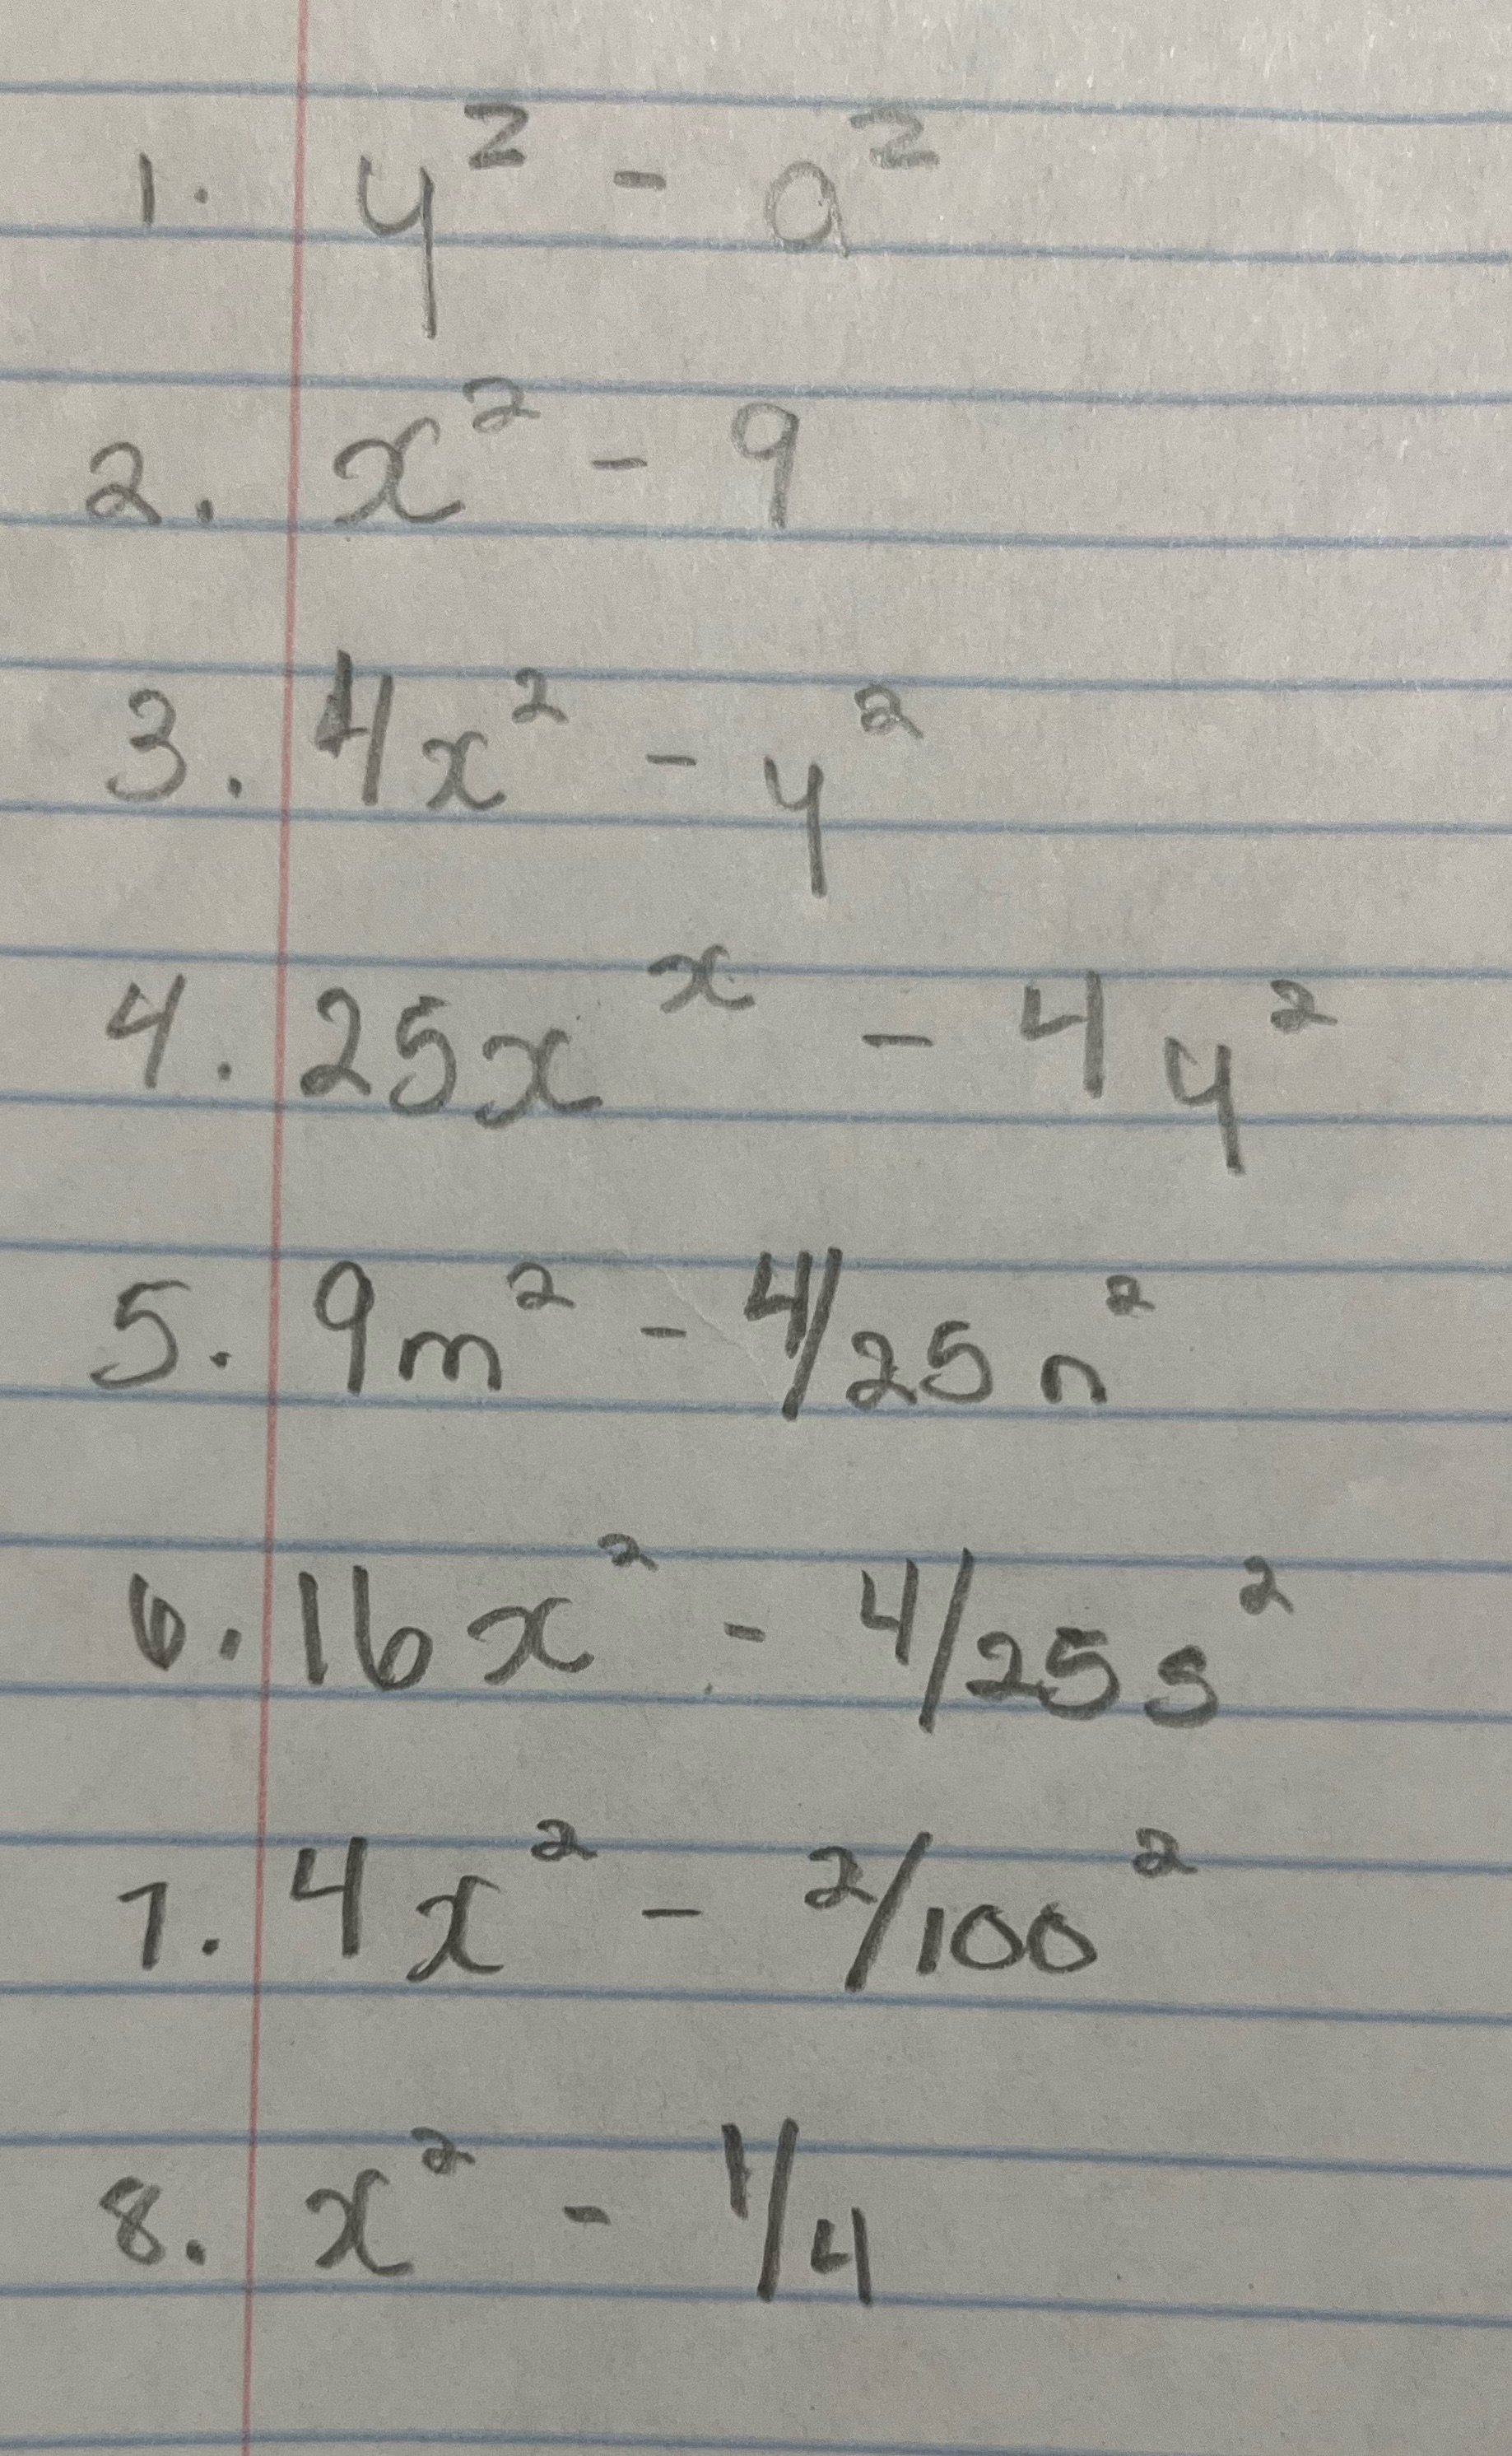 1. y² - a²
2. x² - 9
3. 4x² - y²
4. 25xˣ - 4y²
5. 9m² - 4/25n²
6. 16x² - 4/25s²
7. 4x² - 2/100²
8. x² - 1/4